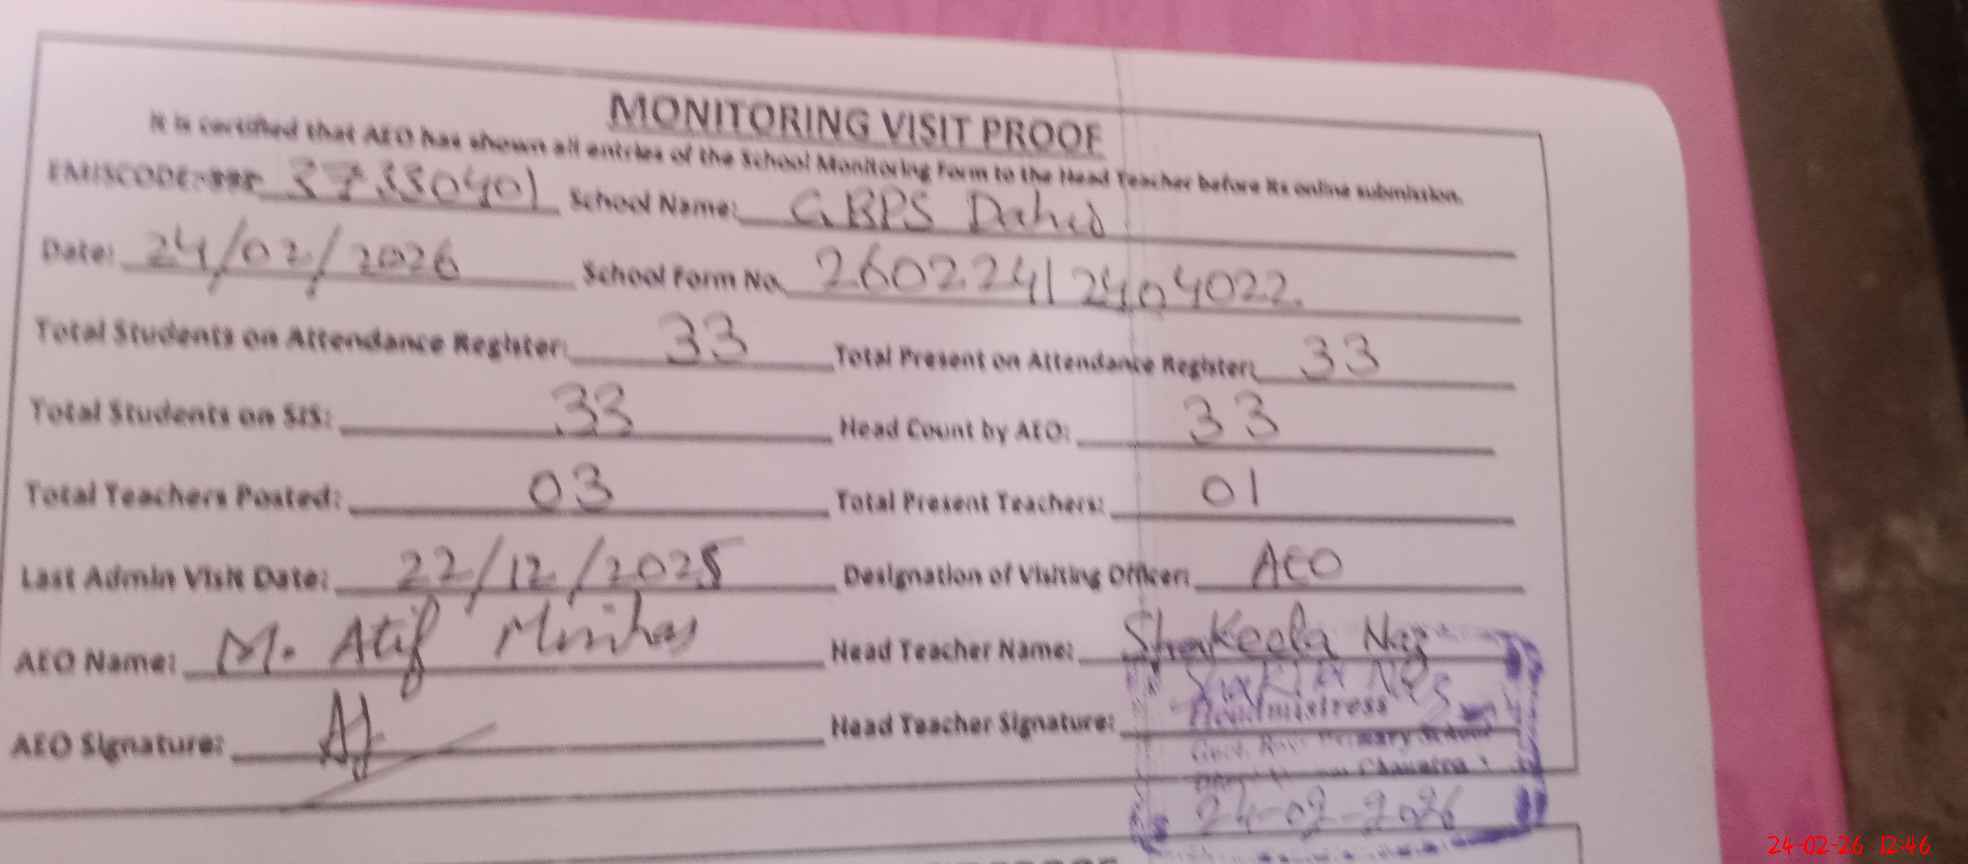 MONITORING VISIT PROOF
It is certified that AEO has shown all entries of the School Monitoring Form to the Head Teacher before its online submission.
EMISCODE: 37330401 School Name: GBPS Dahid
Date: 24/02/2026 School Form No. 26022412404022
Total Students on Attendance Register: 33 Total Present on Attendance Register: 33
Total Students on SIS: 33 Head Count by AEO: 33
Total Teachers Posted: 03 Total Present Teachers: 01
Last Admin Visit Date: 22/12/2025 Designation of Visiting Officer: AEO
AEO Name: M. Atif Minhas Head Teacher Name: Shakeela Naz
AEO Signature: Head Teacher Signature:
Headmistress
Govt. Primary School
24-02-2026
24-02-26 12:46